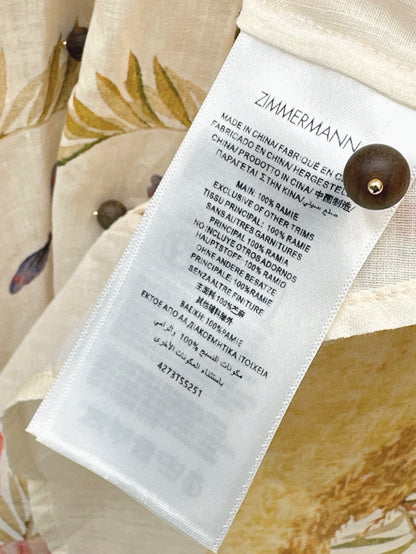 ZIMMERMANN
MADE IN CHINA/ FABRIQUÉ EN
FABRICADO EN CHINA/ HERGESTELL
CHINA/ PRODOTTO IN CINA/ 中国制造/
ΠΑΡΑΓΕΤΑΙ ΣΤΗΝ ΚΙΝΑ/
MAIN: 100% RAMIE
EXCLUSIVE OF OTHER TRIMS
TISSU PRINCIPAL: 100% RAMIE
SANS AUTRES GARNITURES
PRINCIPAL: 100% RAMIA
NO INCLUYE OTROS ADORNOS
HAUPTSTOFF: 100% RAMIE
OHNE ANDERE BESÄTZE
PRINCIPALE: 100% RAMIE
SENZA ALTRE FINITURE
主面料: 100%苎麻
其他辅料除外
ΒΑΣΙΚΗ: 100% ΡΑΜΙΕ
ΕΚΤΟΣ ΑΠΟ ΑΛ ΔΙΑΚΟΣΜΗΤΙΚΑ ΣΤΟΙΧΕΙΑ
مكونات النسيج %100 والرامي
باستثناء المكونات الأخرى
4273TS5251